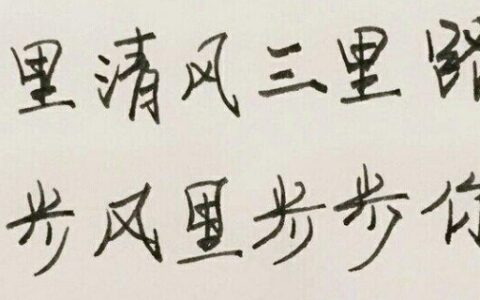 里清风三里路
步风里步步你